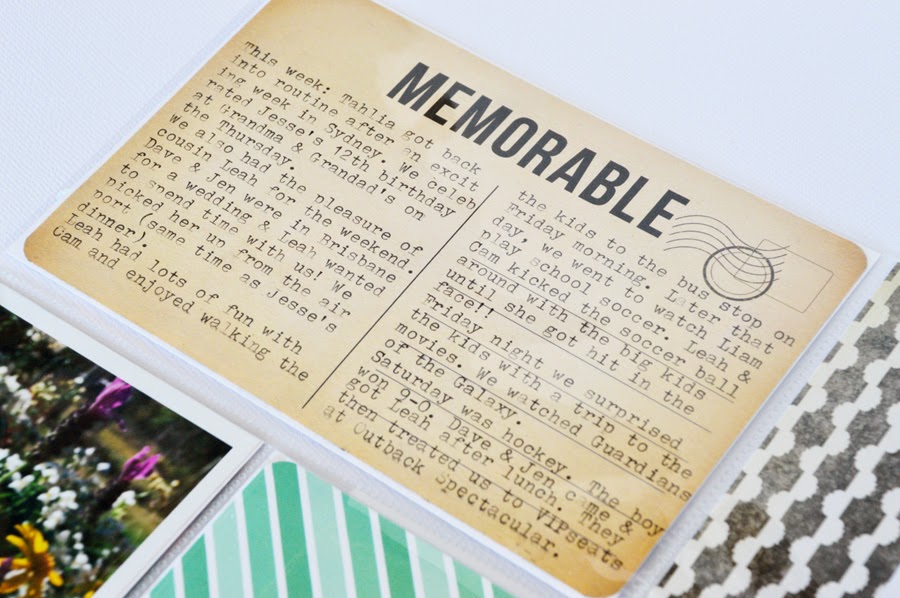 MEMORABLE
This week: Tahlia got back
into routine after an excit
ing week in Sydney. We celeb
rated Jesse's 12th birthday
at Grandma & Grandad's on
the Thursday.
We also had the pleasure of
cousin Leah for the weekend.
Dave & Jen were in Brisbane
for a wedding & Leah wanted
to spend time with us! We
picked her up from the air
port (same time as Jesse's
dinner).
Leah had lots of fun with
Cam and enjoyed walking the
the kids to the bus stop on
Friday morning. Later that
day, we went to watch Liam
play school soccer. Leah &
Cam kicked the soccer ball
around with the big kids
until she got hit in the
face!!
Friday night we surprised
the kids with a trip to the
movies. We watched Guardians
of the Galaxy.
Saturday was hockey. The boy
won 9-0. Dave & Jen came &
got Leah after lunch. They
then treated us to VIPseats
at Outback Spectacular.